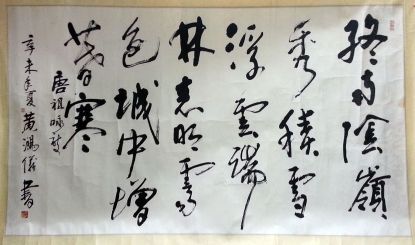 終南陰嶺
秀積雪
浮雲端
林表明霽
色城中增
暮寒
唐祖咏詩
辛未年夏黄鴻儀書